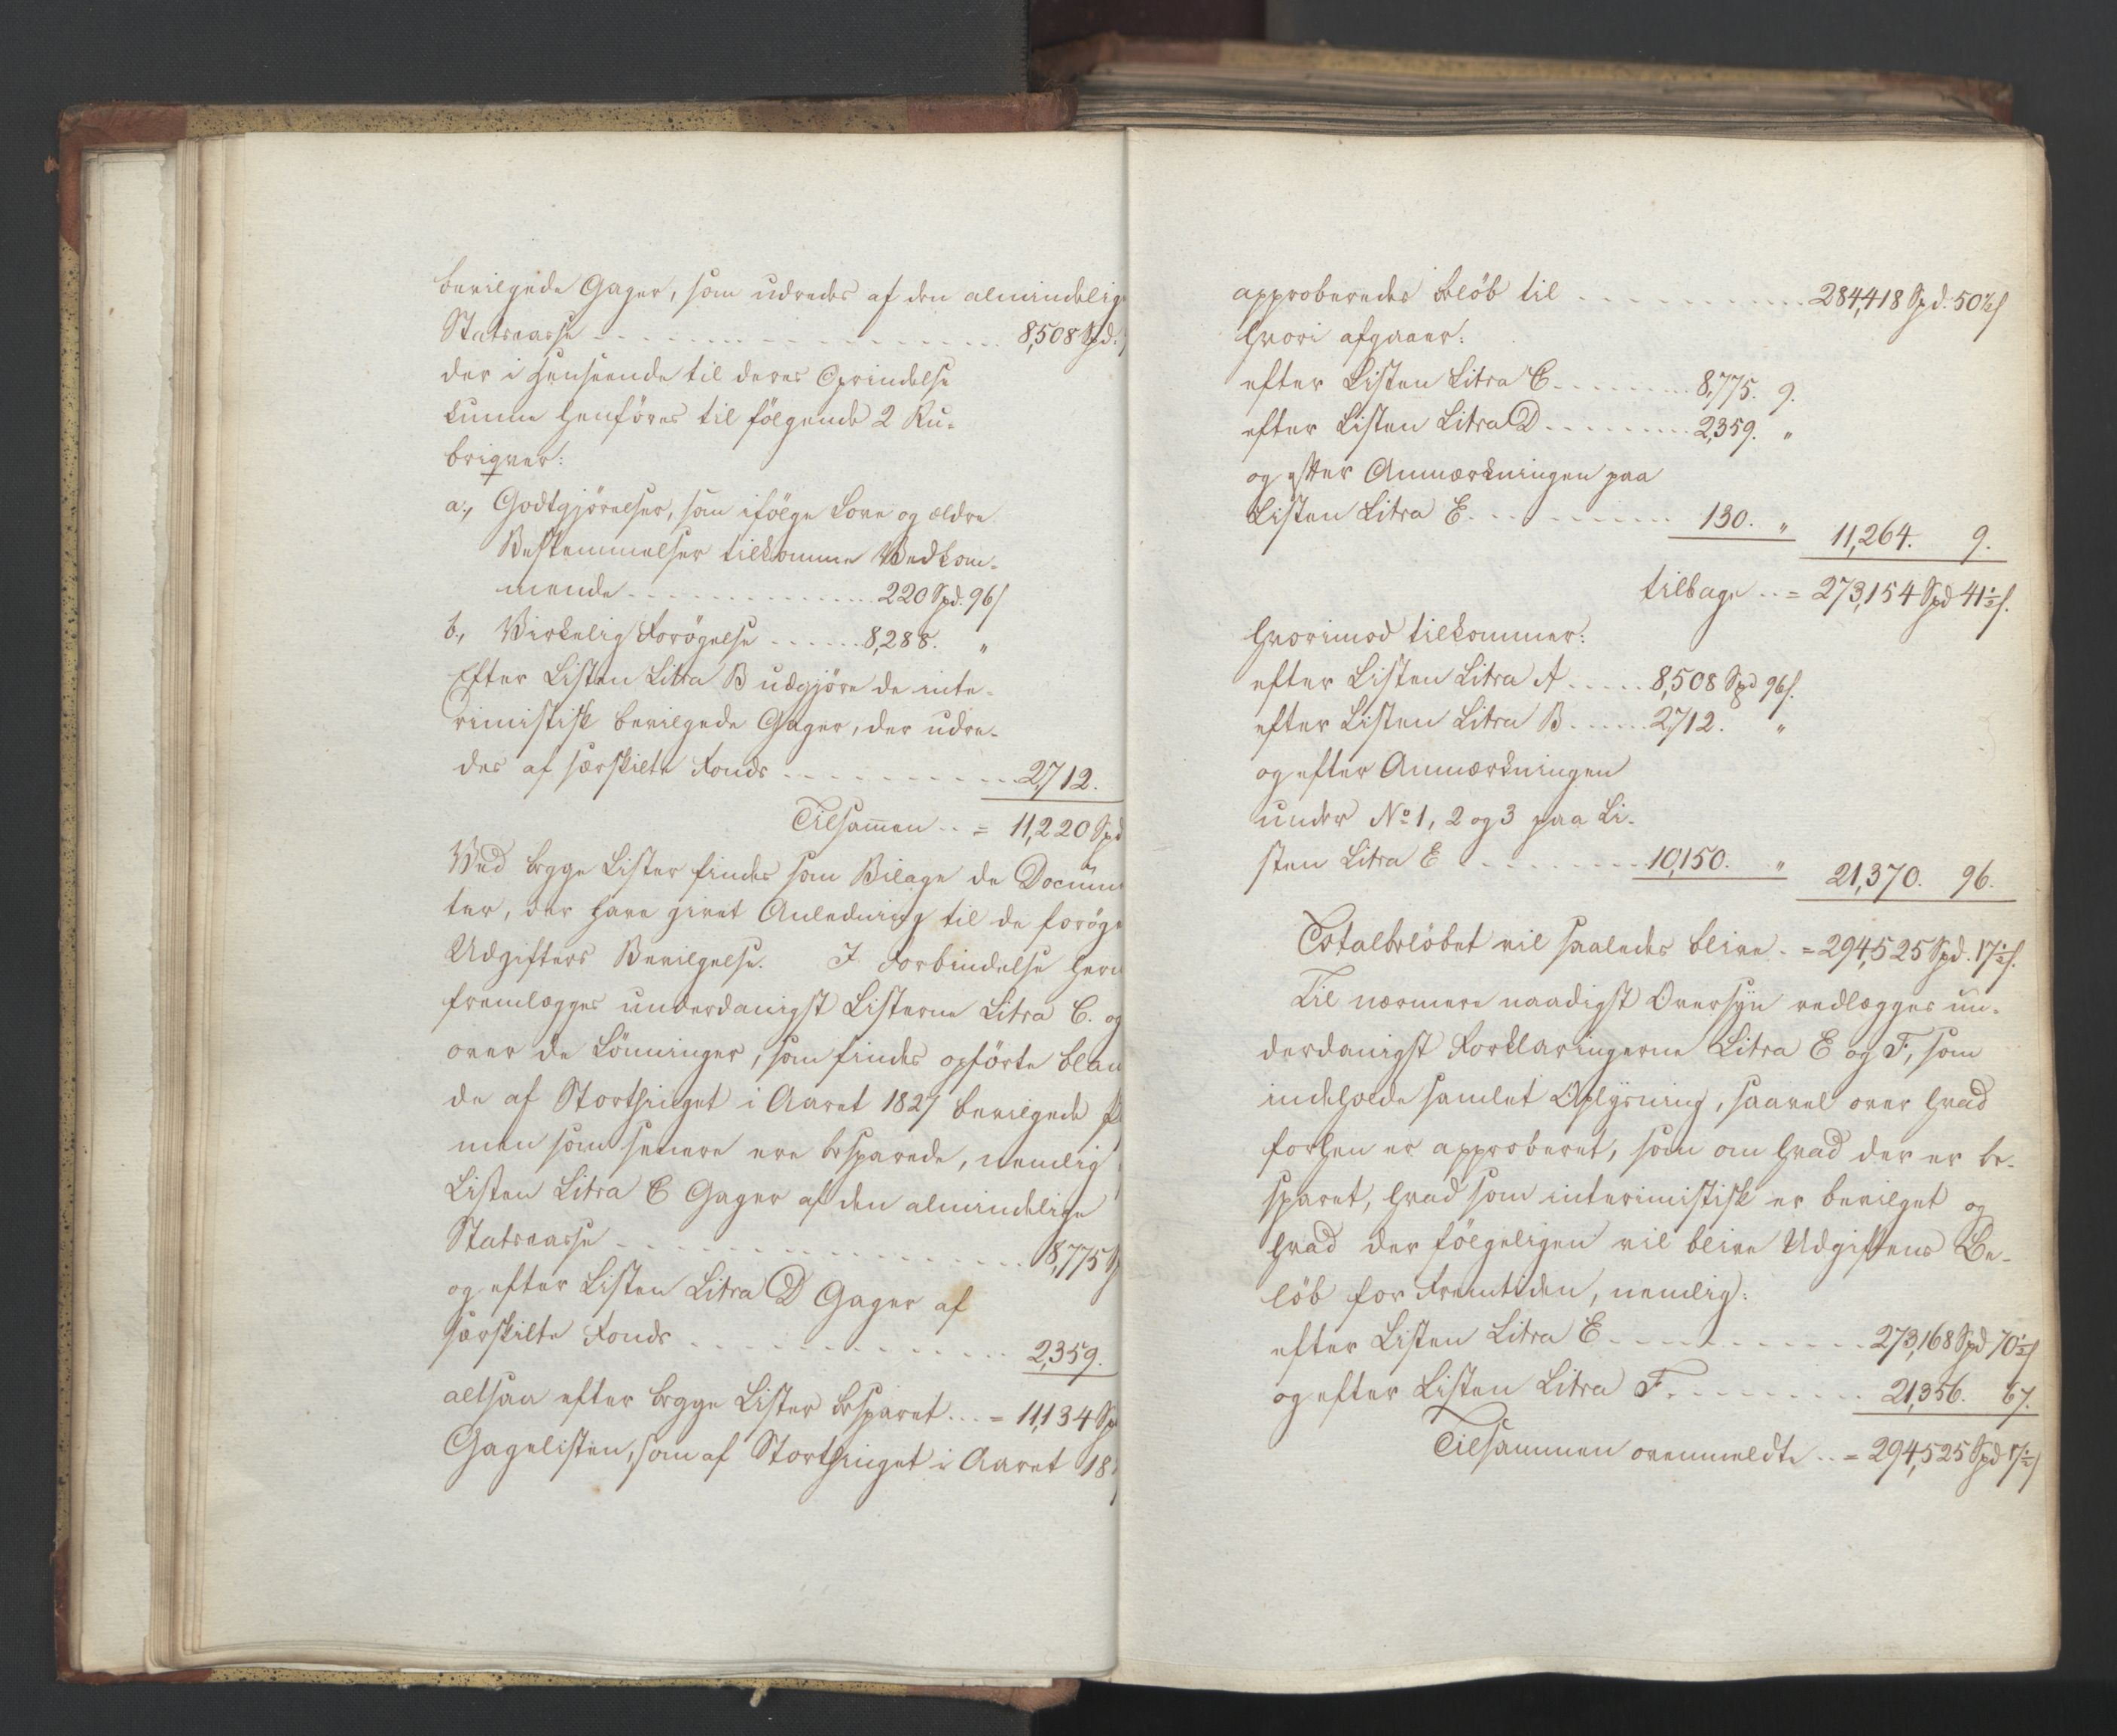 bevilgede Gager, som udredes af den almindelig
Statscasse 8,508 Spd.
der i Henseende til deres Oprindelse
kunne henföres til fölgende 2 Ru-
briqver:
a., Godtgjörelser, som ifölge Love og ældre
Bestemmelser tilkomme Vedkom-
mende 220 Spd. 96 s
b., Virkelig Forögelse 8,288. "
Efter Listen Litra B udgjöre de inte-
rimistisk bevilgede Gager, der udre-
des af særskilte Fonds 2,712.
Tilsammen .. = 11,220 Spd
Ved begge Lister findes som Bilage de Docum
ter, der have givet Anledning til de foröge
Udgifters Bevilgelse. I Forbindelse her
fremlægges underdanigst Listerne Litra C. og
over de Lönninger, som findes opförte blan
de af Storthinget i Aaret 1827 bevilgede
men som senere ere besparede, nemlig
Listen Litra C Gager af den almindelige
Statscasse 8,775 S
og efter Listen Litra D Gager af
særskilte Fonds 2,359.
altsaa efter begge Lister besparet ... = 11,134 Sp
Gagelisten, som af Storthinget i Aaret 18
approberedes Belöb til 284,418 Spd. 50½ s
hvori afgaaer:
efter Listen Litra C 8,775. 9.
efter Listen Litra D 2,359. "
og efter Anmærkningen paa
Listen Litra E 130. " 11,264. 9.
tilbage .. = 273,154 Spd 41½ s.
hvorimod tilkommer:
efter Listen Litra A 8,508 Spd 96 s.
efter Listen Litra B 2,712. "
og efter Anmærkningen
under No 1, 2 og 3 paa Li-
sten Litra E 10,150. " 21,370. 96.
Totalbelöbet vil saaledes blive . = 294,525 Spd. 17½ s.
Til nærmere naadigst Oversyn vedlægges un-
derdanigst Forklaringerne Litra E og F, som
indeholde samlet Oplysning, saavel over hvad
forhen er approberet, som om hvad der er be-
sparet, hvad som interimistisk er bevilget og
hvad der fölgeligen vil blive Udgiftens Be-
löb for Fremtiden, nemlig:
efter Listen Litra E 273,168 Spd 70½ s
og efter Listen Litra F. 21,356. 67.
Tilsammen ovenmeldte .. = 294,525 Spd 17½ s